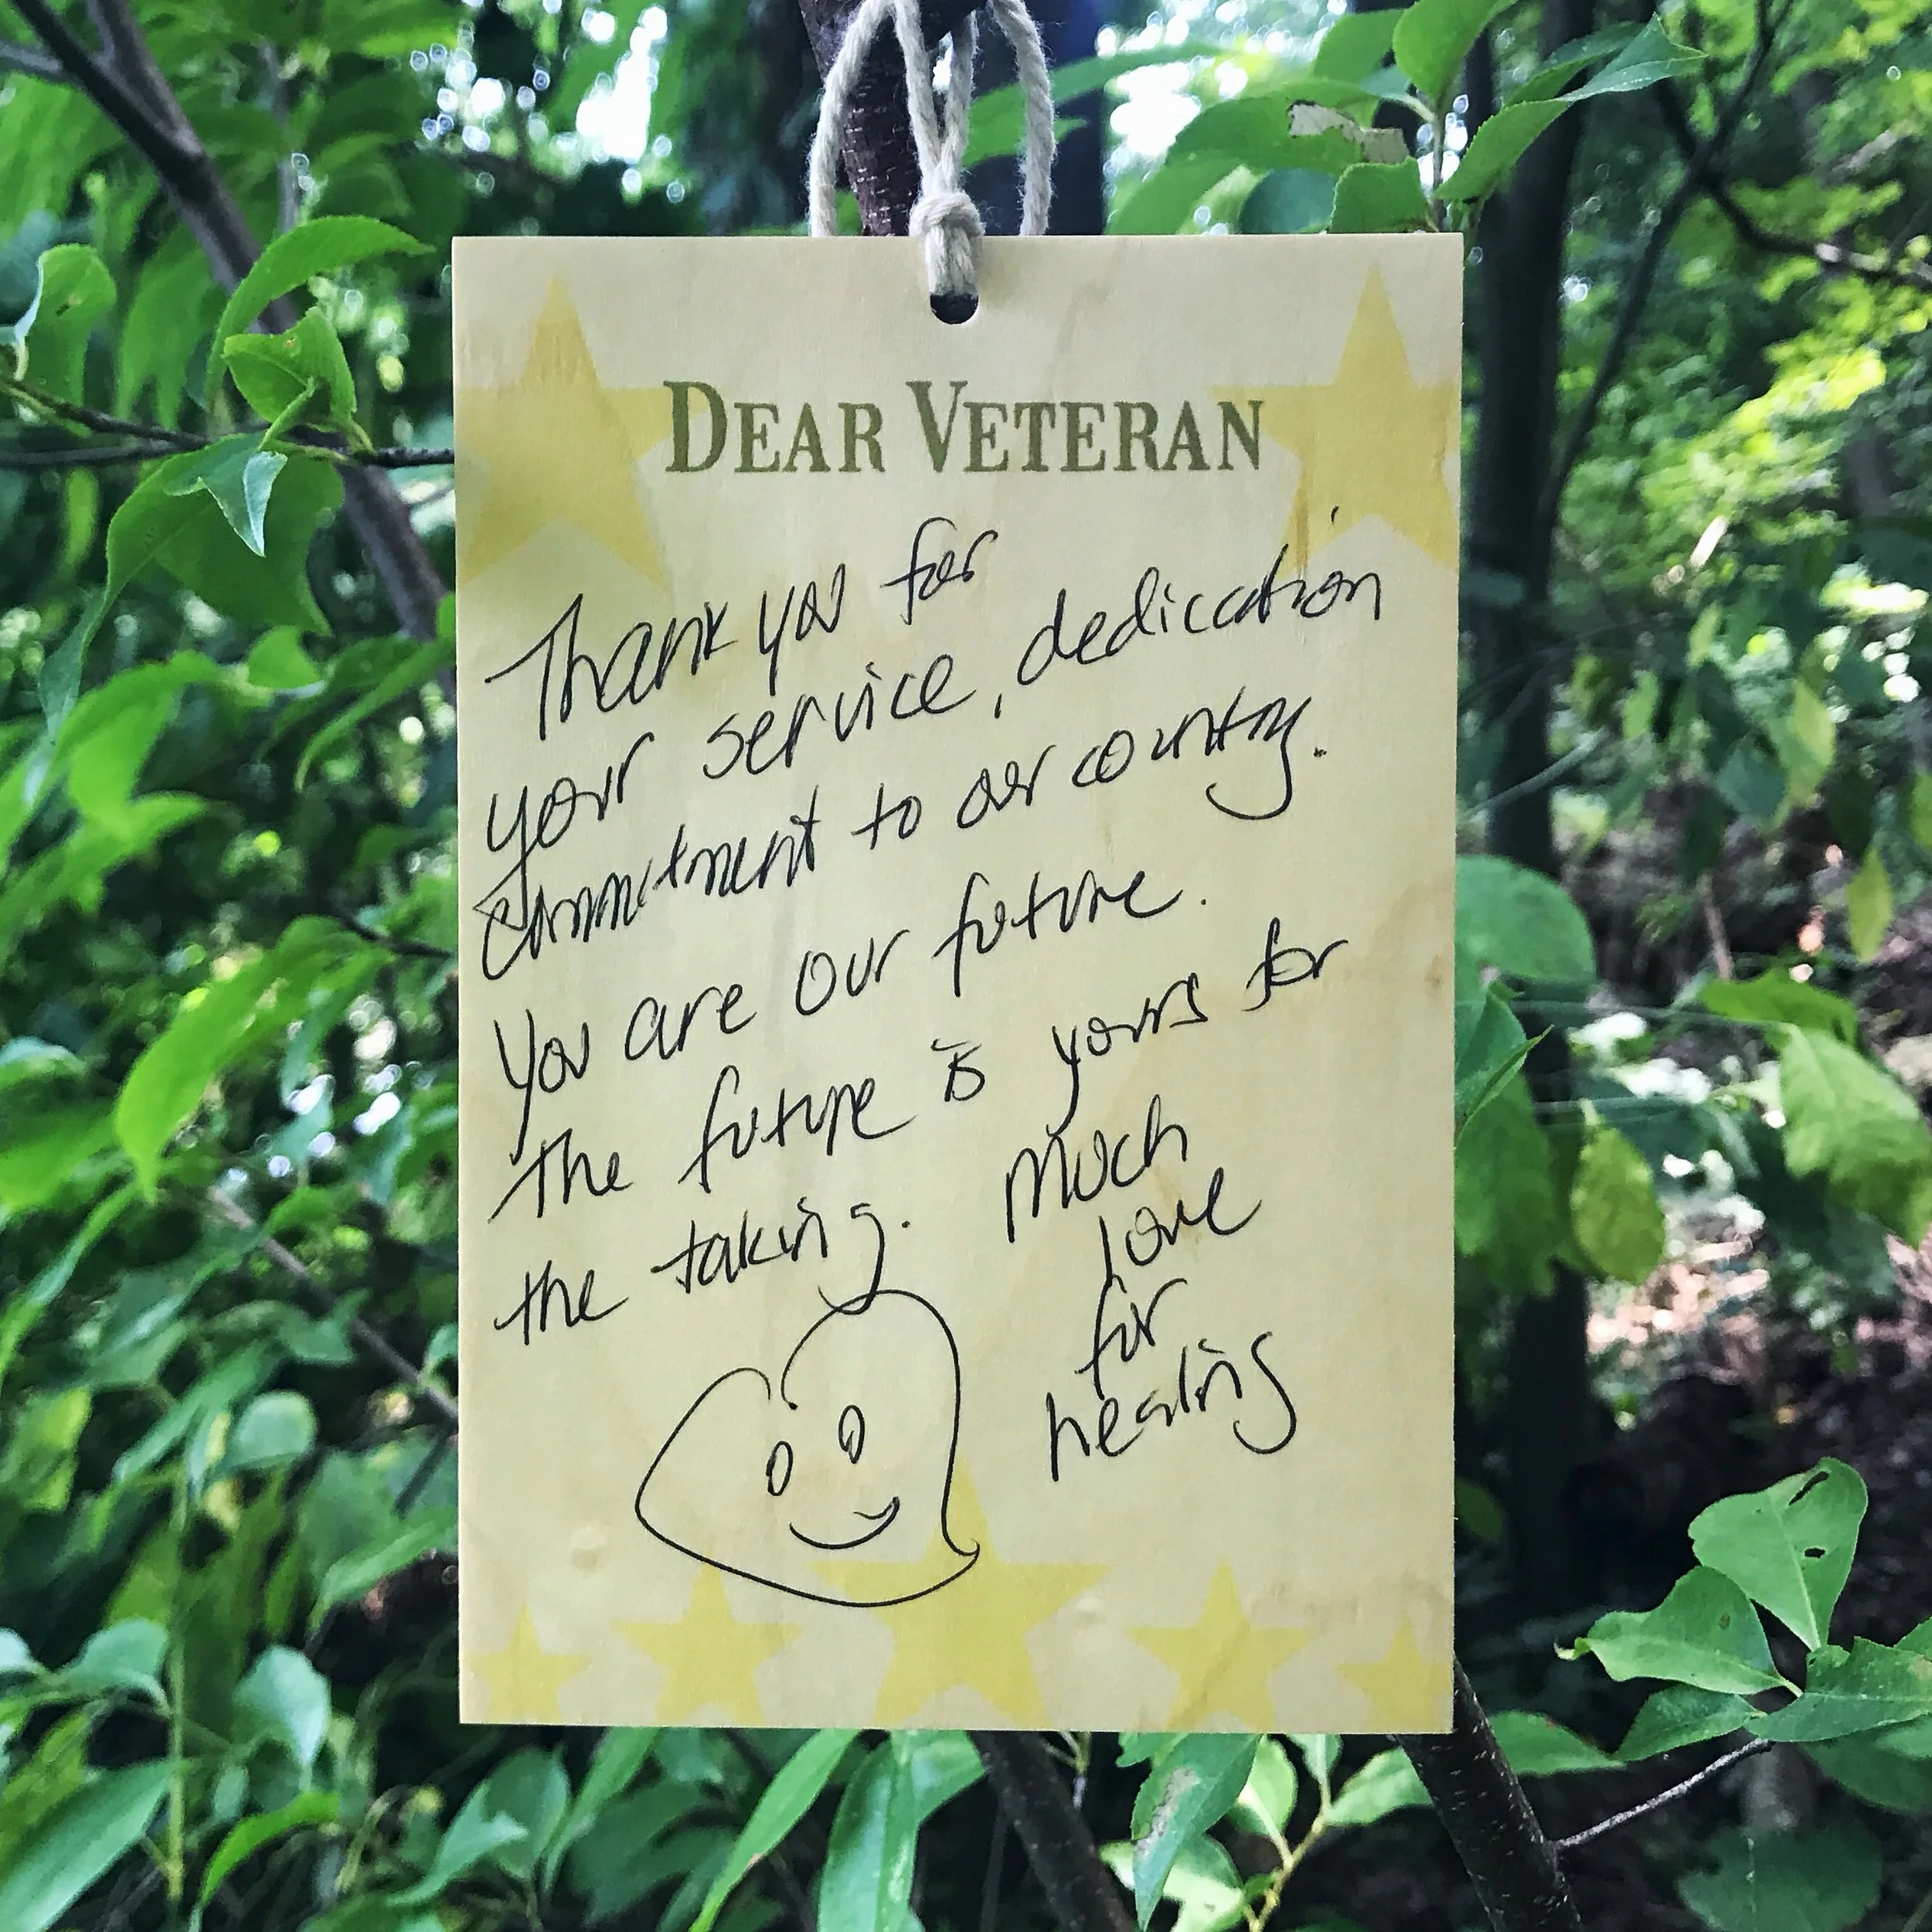 DEAR VETERAN
Thank you for
your service, dedication
commitment to our country.
You are our future.
The future is yours for
the taking. Much
love
for
healing